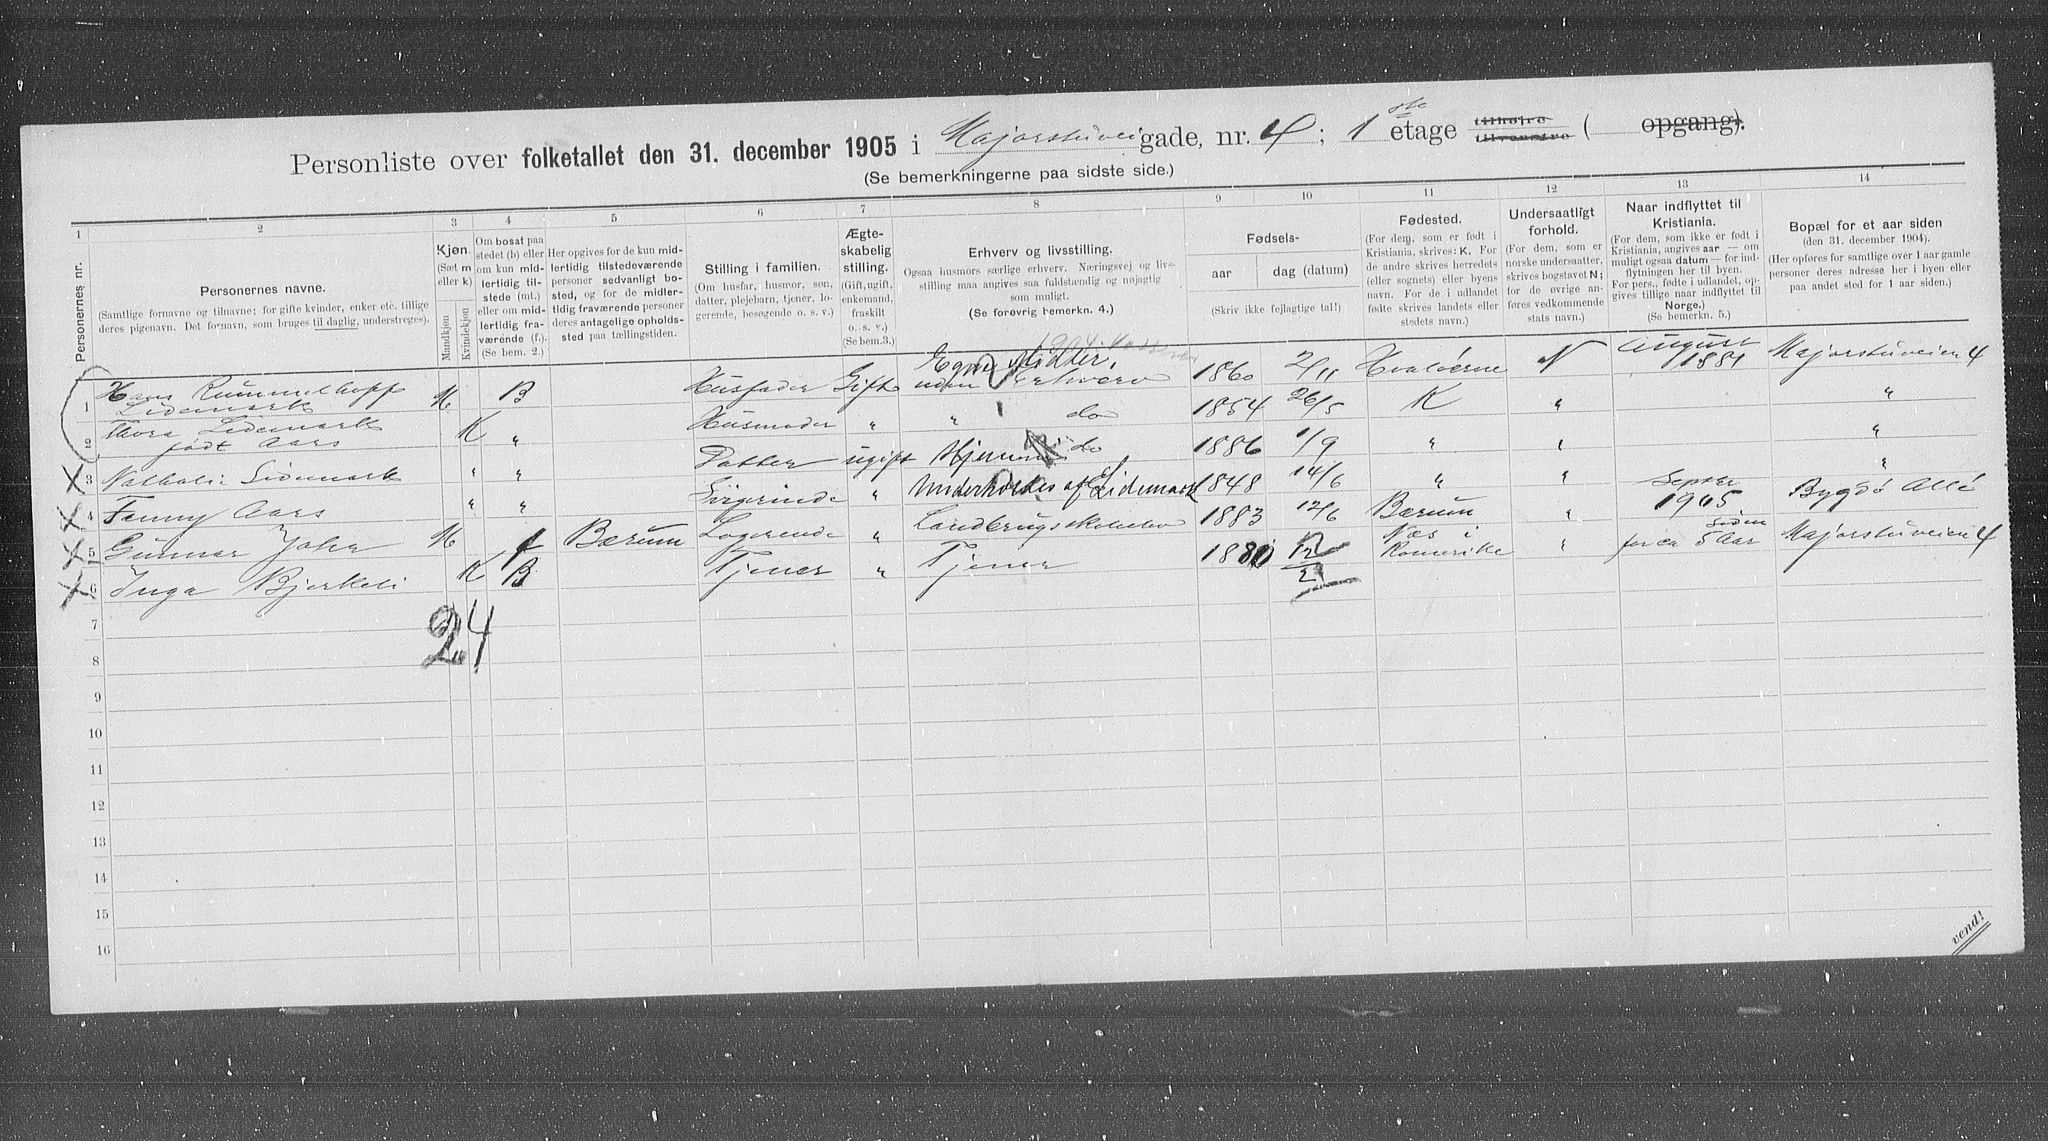 Personliste over folketallet den 31. december 1905 i Majorstuveigade, nr. 4; 1ste etage tilhøire tilvenstre ( opgang).
(Se bemerkningerne paa sidste side.)
1 2 3 4 5 6 7 8 9 10 11 12 13 14
Personernes nr.
Personernes navne.
(Samtlige fornavne og tilnavne; for gifte kvinder, enker etc. tillige
deres pigenavn. Det fornavn, som bruges til daglig, understreges).
Kjøn.
(Sæt m
eller k)
Mandkjøn
Kvindekjøn
Om bosat paa
stedet (b) eller
om kun mid-
lertidig til-
stede (mt.)
eller om mid-
lertidig fra-
værende (f.).
(Se bem. 2.)
Her opgives for de kun mid-
lertidig tilstedeværende
personer sedvanligt bo-
sted, og for de midler-
tidig fraværende personer
deres antagelige opholds-
sted paa tællingstiden.
Stilling i familien.
(Om husfar, husmor, søn,
datter, plejebarn, tjener, lo-
gerende, besøgende o. s. v.)
Ægte-
skabelig
stilling.
(Gift, ugift,
enkemand,
fraskilt
o. s. v.)
(Se bem.3.)
Erhverv og livsstilling.
Ogsaa husmors særlige erhverv. Næringsvej og livs-
stilling maa angives saa fuldstændig og nøjagtig
som muligt.
(Se forøvrig bemerkn. 4.)
Fødsels-
aar
dag (datum)
(Skriv ikke fejlagtige tal!)
Fødested.
(For dem, som er født i
Kristiania, skrives: K. For
de andre skrives herredets
(eller sognets) eller byens
navn. For de i udlandet
fødte skrives landets eller
stedets navn.)
Undersaatligt
forhold.
(For dem, som er
norske undersaatter,
skrives bogstavet N;
for de øvrige an-
føres vedkommende
stats navn).
Naar indflyttet til
Kristiania.
(For dem, som ikke er født i
Kristiania, angives aar — om
muligt ogsaa datum — for ind-
flytningen her til byen.
For pers., fødte i udlandet, op-
gives tillige naar indflyttet til
Norge.)
(Se bemerkn. 5.)
Bopæl for et aar siden
(den 31. december 1904).
(Her opføres for samtlige over 1 aar gamle
personer deres adresse her i byen eller
paa andet sted for 1 aar siden.)
1 Hans Rummelhoff Lidemark M B Husfader Gift Egne Midler, uden Erhverv 1860 2/11 Hvaløerne N August 1881 Majorstuveien 4
2 Thora Lidemark født Aars K " Husmoder " " do 1854 26/5 K " "
X 3 Nathalie Lidemark " " Datter ugift Hjemme do 1886 1/9 " " "
X 4 Fanny Aars " " " Underholdes af Lidemark 1848 14/6 " " "
X 5 Gunnar Johr M f Bærum Logerende " Landbrugsskoleelev 1883 12/6 Bærum " Septbr 1905 Bygdø Allé
X 6 Inga Bjerkeli K B Tjener " Tjener 1880 12/2 Næs i Romerike " for ca 5 Aar siden Majorstuveien 4
24
7
8
9
10
11
12
13
14
15
16
vend!